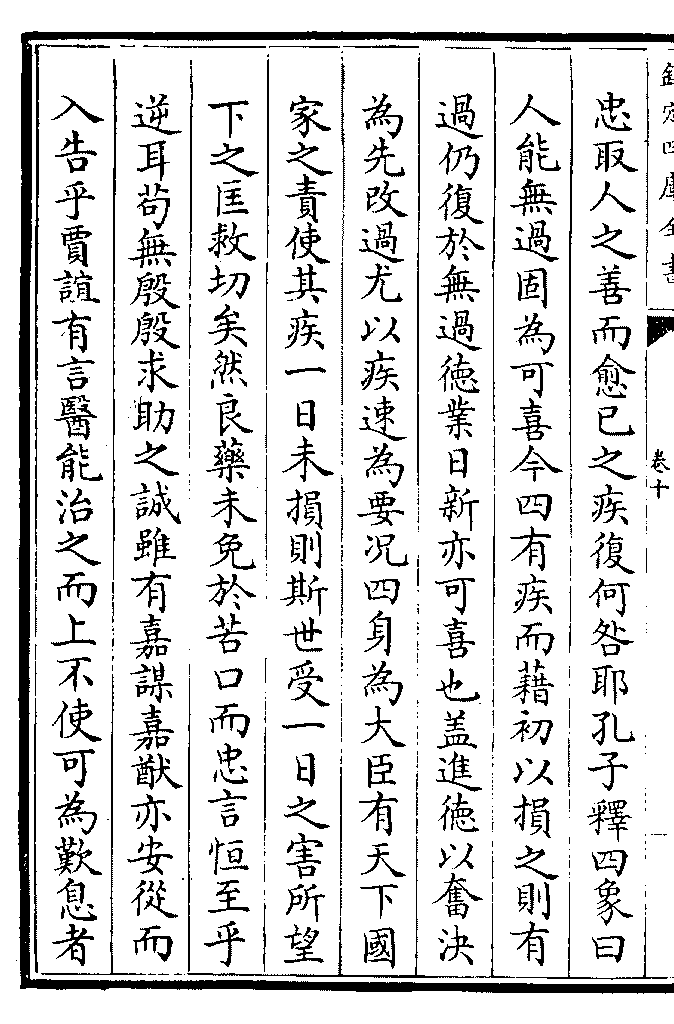 欽定四庫全書
卷十
忠取人之善而愈已之疾復何咎耶孔子釋四象曰
人能無過固為可喜今四有疾而藉初以損之則有
過仍復於無過徳業日新亦可喜也盖進徳以奮決
為先改過尤以疾速為要况四身為大臣有天下國
家之責使其疾一日未損則斯世受一日之害所望
下之匡救切矣然良藥未免於苦口而忠言恒至乎
逆耳苟無殷殷求助之誠雖有嘉謀嘉猷亦安從而
入告乎賈誼有言醫能治之而上不使可為歎息者